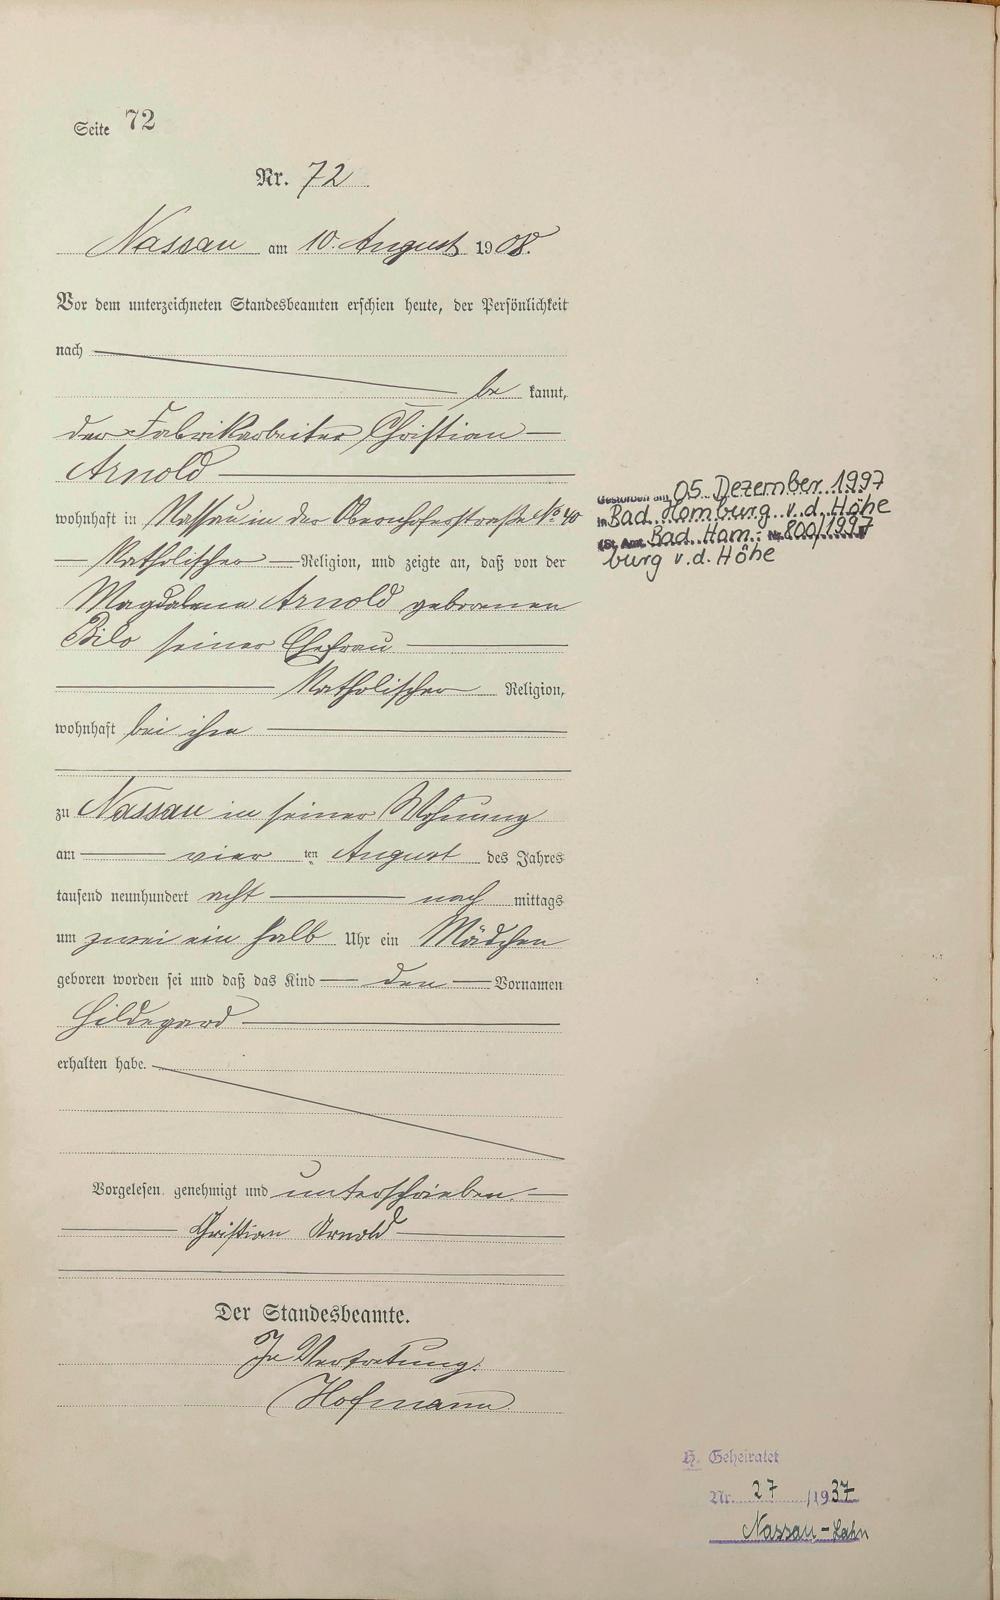 Seite 72
Nr. 72
Nassau am 10. August 1908.
Vor dem unterzeichneten Standesbeamten erschien heute, der Persönlichkeit
nach
be kannt,
der Fabrikarbeiter Christian
Arnold
wohnhaft in Nassau in der Obernhoferstraße No 40
Katholischer Religion, und zeigte an, daß von der
Magdalena Arnold geborenen
Bilo seiner Ehefrau
Katholischer Religion,
wohnhaft bei ihm
zu Nassau in seiner Wohnung
am vier ten August des Jahres
tausend neunhundert acht nach mittags
um zwei ein halb Uhr ein Mädchen
geboren worden sei und daß das Kind den Vornamen
Hildegard
erhalten habe.
Vorgelesen, genehmigt und unterschrieben.
Christian Arnold
Der Standesbeamte.
In Vertretung.
Hofmann
Gestorben am 05. Dezember 1997
in Bad Homburg v.d. Höhe
(St. Amt Bad Hom- Nr. 800/1997)
burg v.d. Höhe
H. Geheiratet
Nr. 27 /1937
Nassau-Lahn